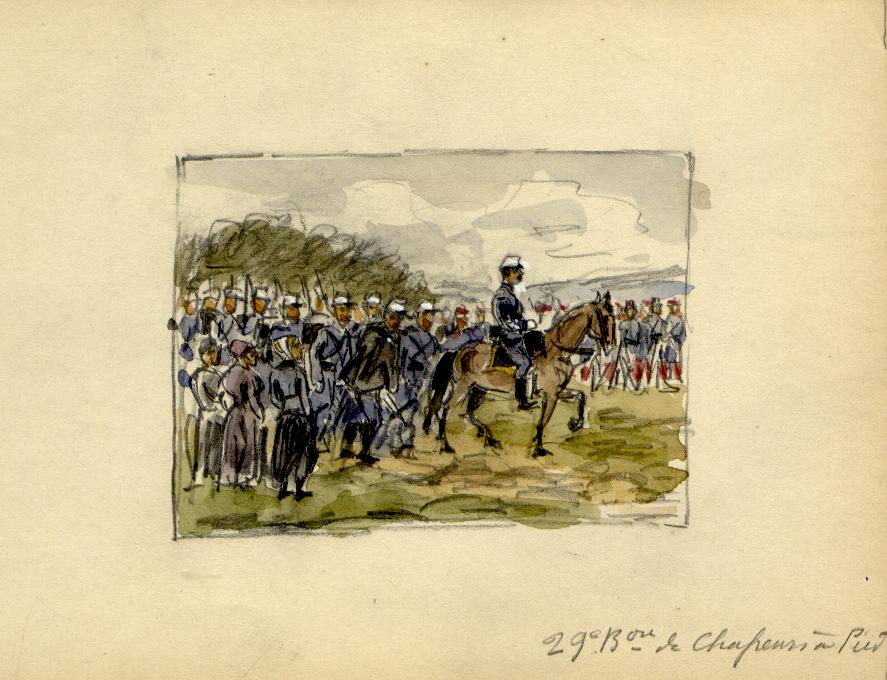 29e Bon de Chasseurs à Pied